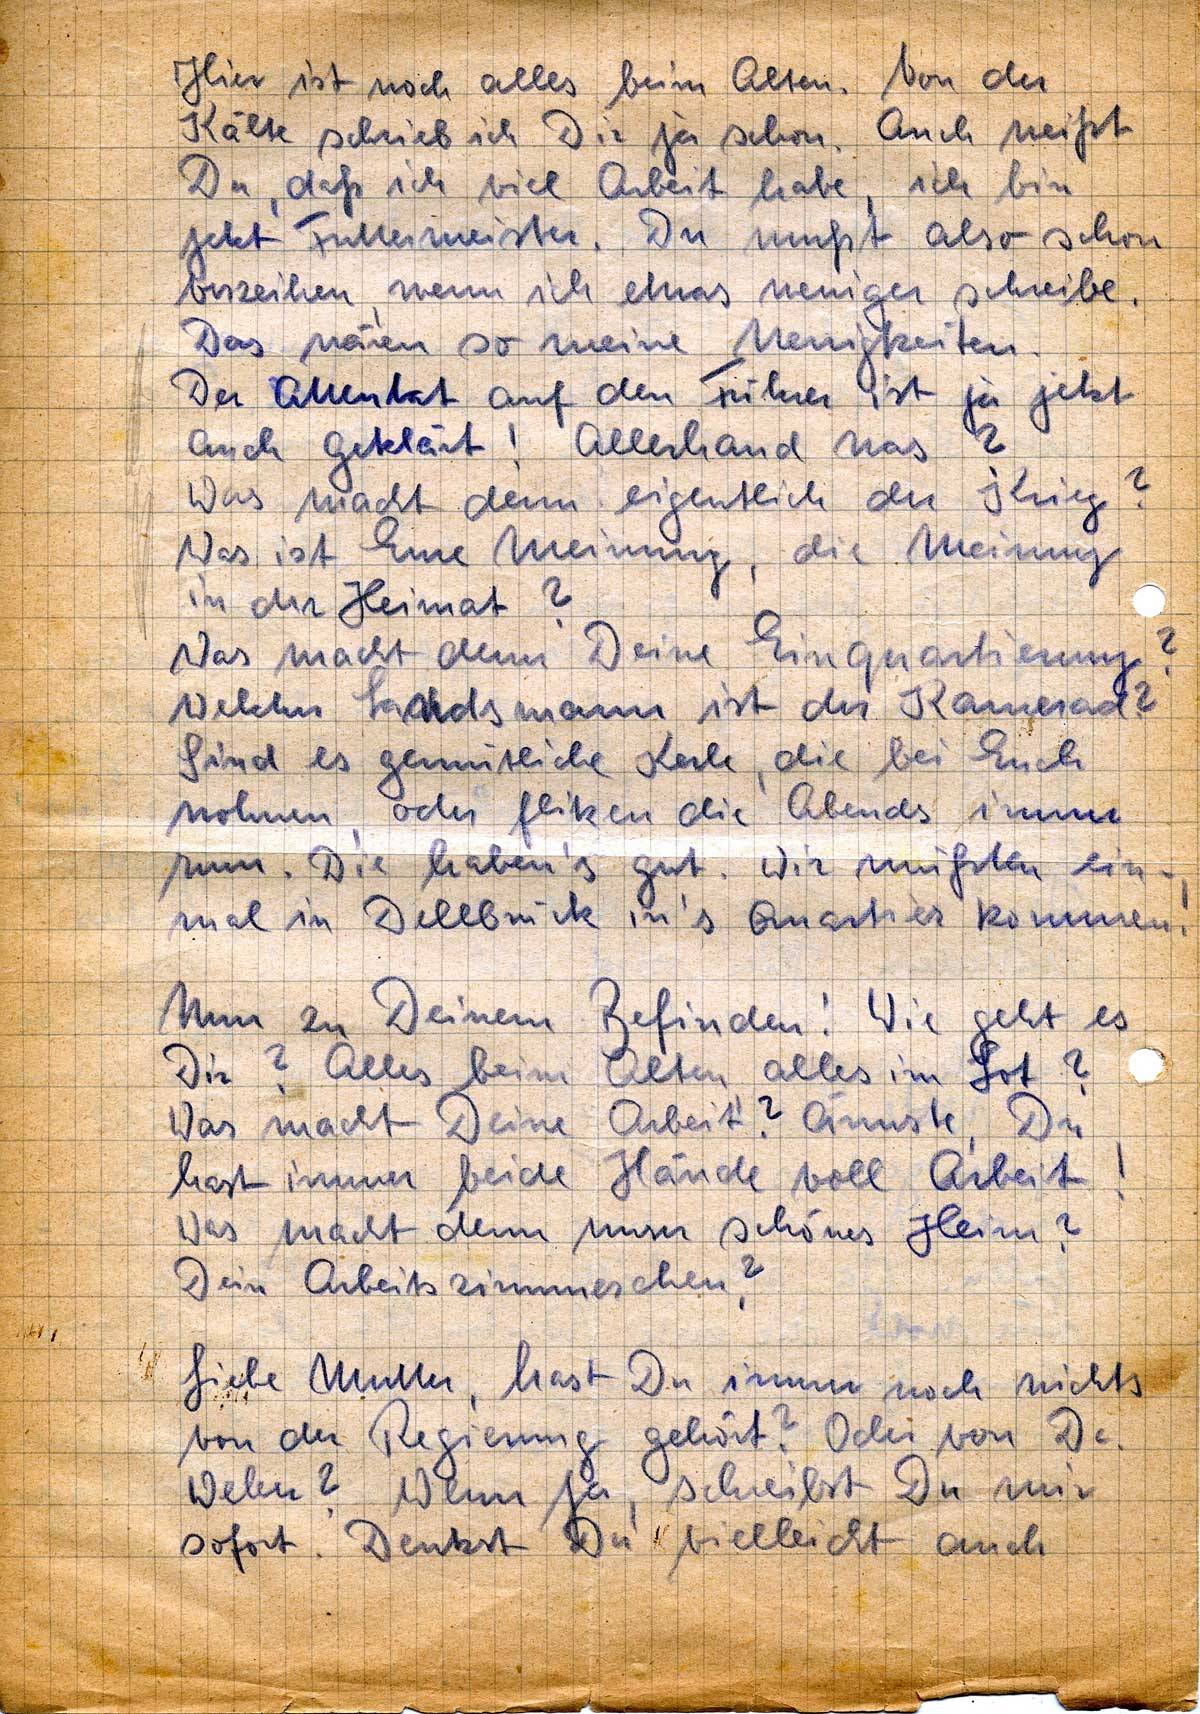 Hier ist noch alles beim Alten. Von der
Kälte schrieb ich Dir ja schon. Auch weißt
Du, daß ich viel Arbeit habe, ich bin
jetzt Futtermeister. Du mußt also schon
verzeihen, wenn ich etwas weniger schreibe.
Das wären so meine Neuigkeiten.
Der Attentat auf den Führer ist ja jetzt
auch geklärt! Allerhand was?
Was macht denn eigentlich der Krieg?
Was ist Eure Meinung, die Meinung
in der Heimat?
Was macht denn Deine Einquartierung?
Welcher Landsmann ist der Kamerad?
Sind es gemütliche Kerle, die bei Euch
wohnen, oder flitzen die Abends immer
rum. Die haben's gut. Wir müßten ein-
mal in Dellbrück in's Quartier kommen!
Nun zu Deinem Befinden! Wie geht es
Dir? Alles beim Alten alles im Lot?
Was macht Deine Arbeit? Ärmste, Du
hast immer beide Hände voll Arbeit!
Was macht denn unser schönes Heim?
Dein Arbeitszimmerchen?
Liebe Mutter, hast Du immer noch nichts
von der Regierung gehört? Oder von Dr.
Weber? Wenn ja, schreibst Du mir
sofort. Denkst Du vielleicht auch